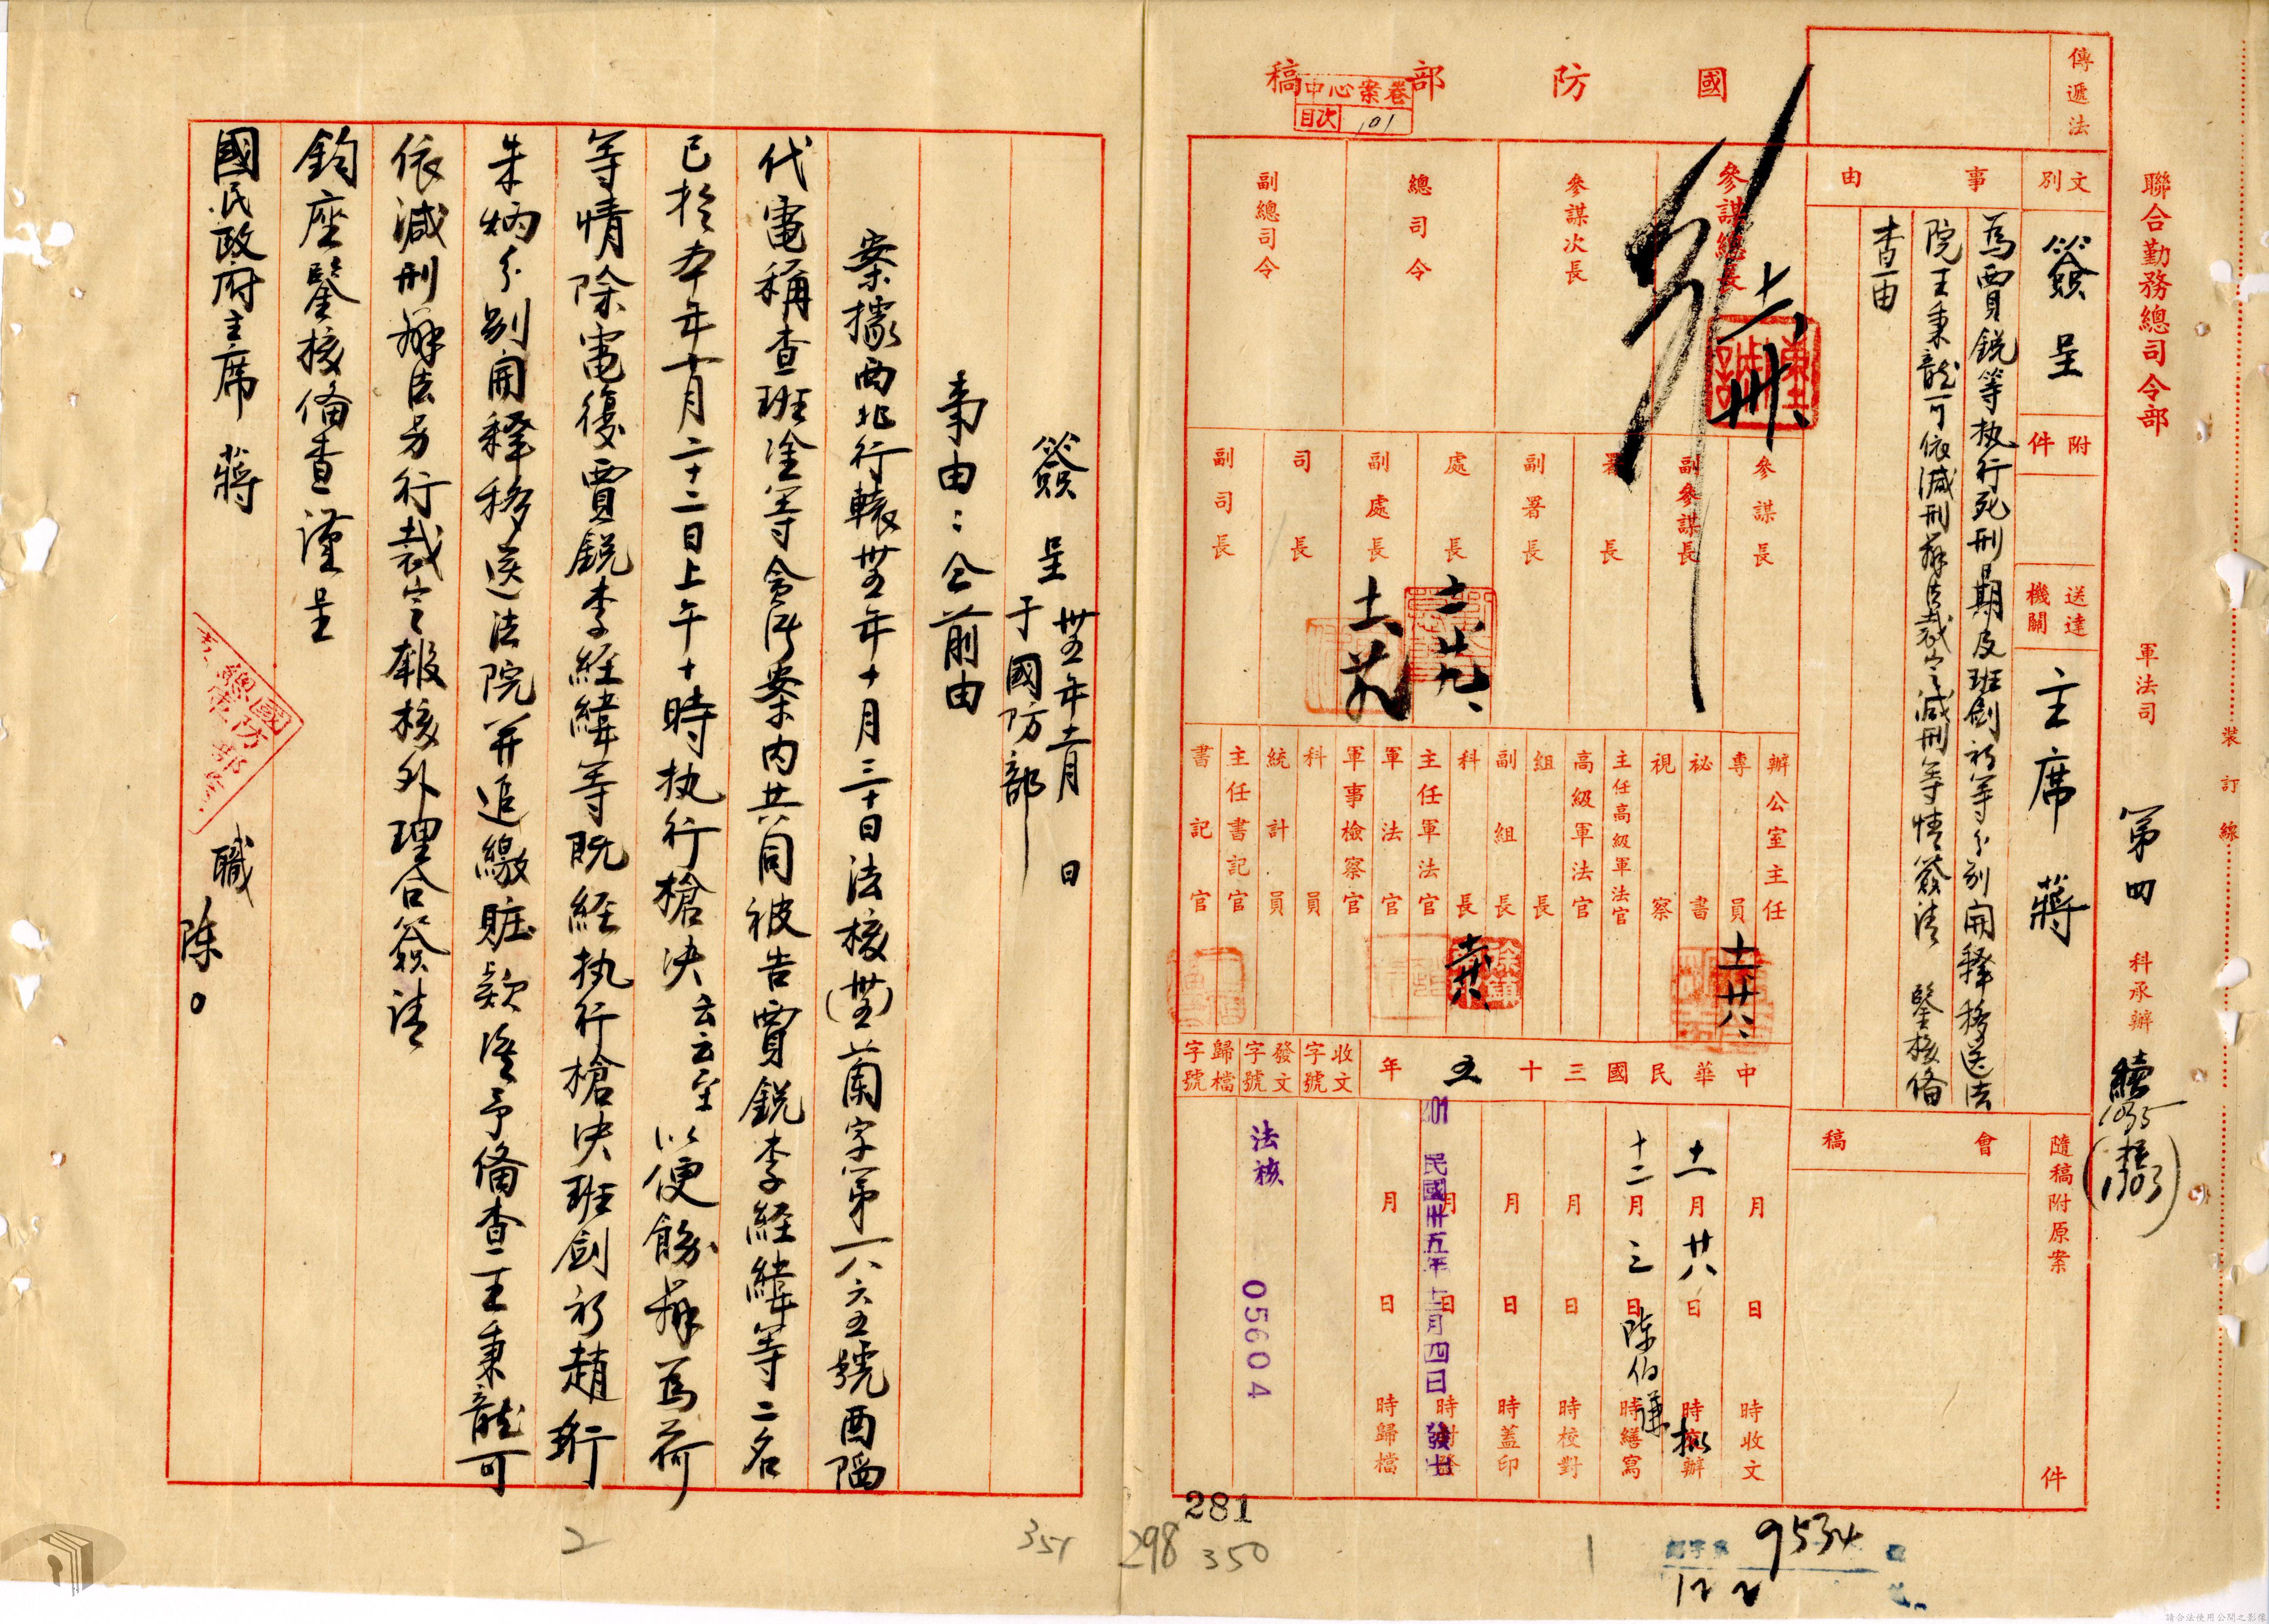 裝訂線
聯合勤務總司令部 軍法司 第四科承辦
傳遞法
國防部稿
中心案卷
目次 101
文別 簽呈
附件
送達機關 主席 蔣
事由
為賈銳等执行死刑日期及班劍衫等分别開釋移送法
院王秉龍可依減刑辦法裁定減刑等情簽請 鑒核備
查由
參謀總長
參謀次長
總司令
副總司令
參謀長
副參謀長
署長
副署長
處長
副處長
司長
副司長
辦公室主任
專員
秘書
視察
主任高級軍法官
高級軍法官
組長
副組長
科長
主任軍法官
軍法官
軍事檢察官
科員
統計員
主任書記官
書記官
隨稿附原案 件
會稿
中華民國三十五年
月 日 時收文
十一月廿八日 時交辦 拟
十二月三日 時繕寫 陳伯謙
月 日 時校對
月 日 時蓋印
月 日 時封發
民國卅五年十二月四日
月 日 時歸檔
收文字號
發文字號
歸檔字號
法核 05604
281
298
350
1
9534
122
簽呈 卅五年十一月 日
于國防部
事由：全前由
案據西北行轅卅五年十月三十日法核(卅五)蘭字第一八六五號酉陷
代電稱查班淦等貪污案内共同被告賈銳李經緯等二名
已於本年十月二十二日上午十時执行槍決云云至以便飭辦為荷
等情除電復賈銳李經緯等既經执行槍決班劍衫趙珩
朱炳分别開釋移送法院并追繳賍欵准予備查王秉龍可
依減刑辦法另行裁定報核外理合簽請
鈞座鑒核備查謹呈
國民政府主席 蔣
職 陳○
351
2
請合法使用公開之影像